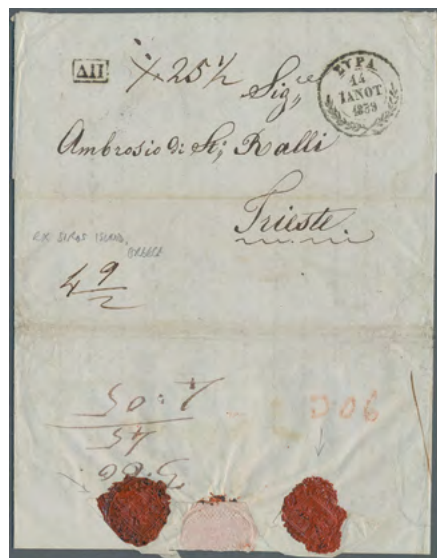 ΔΠ
25 1/2
ΣΥΡΑ
14
ΙΑΝΟΥ
1839
Sig.re
Ambrosio di St; Ralli
Trieste
EX SIROS ISLAND,
GREECE
4 9/2
1:05
45